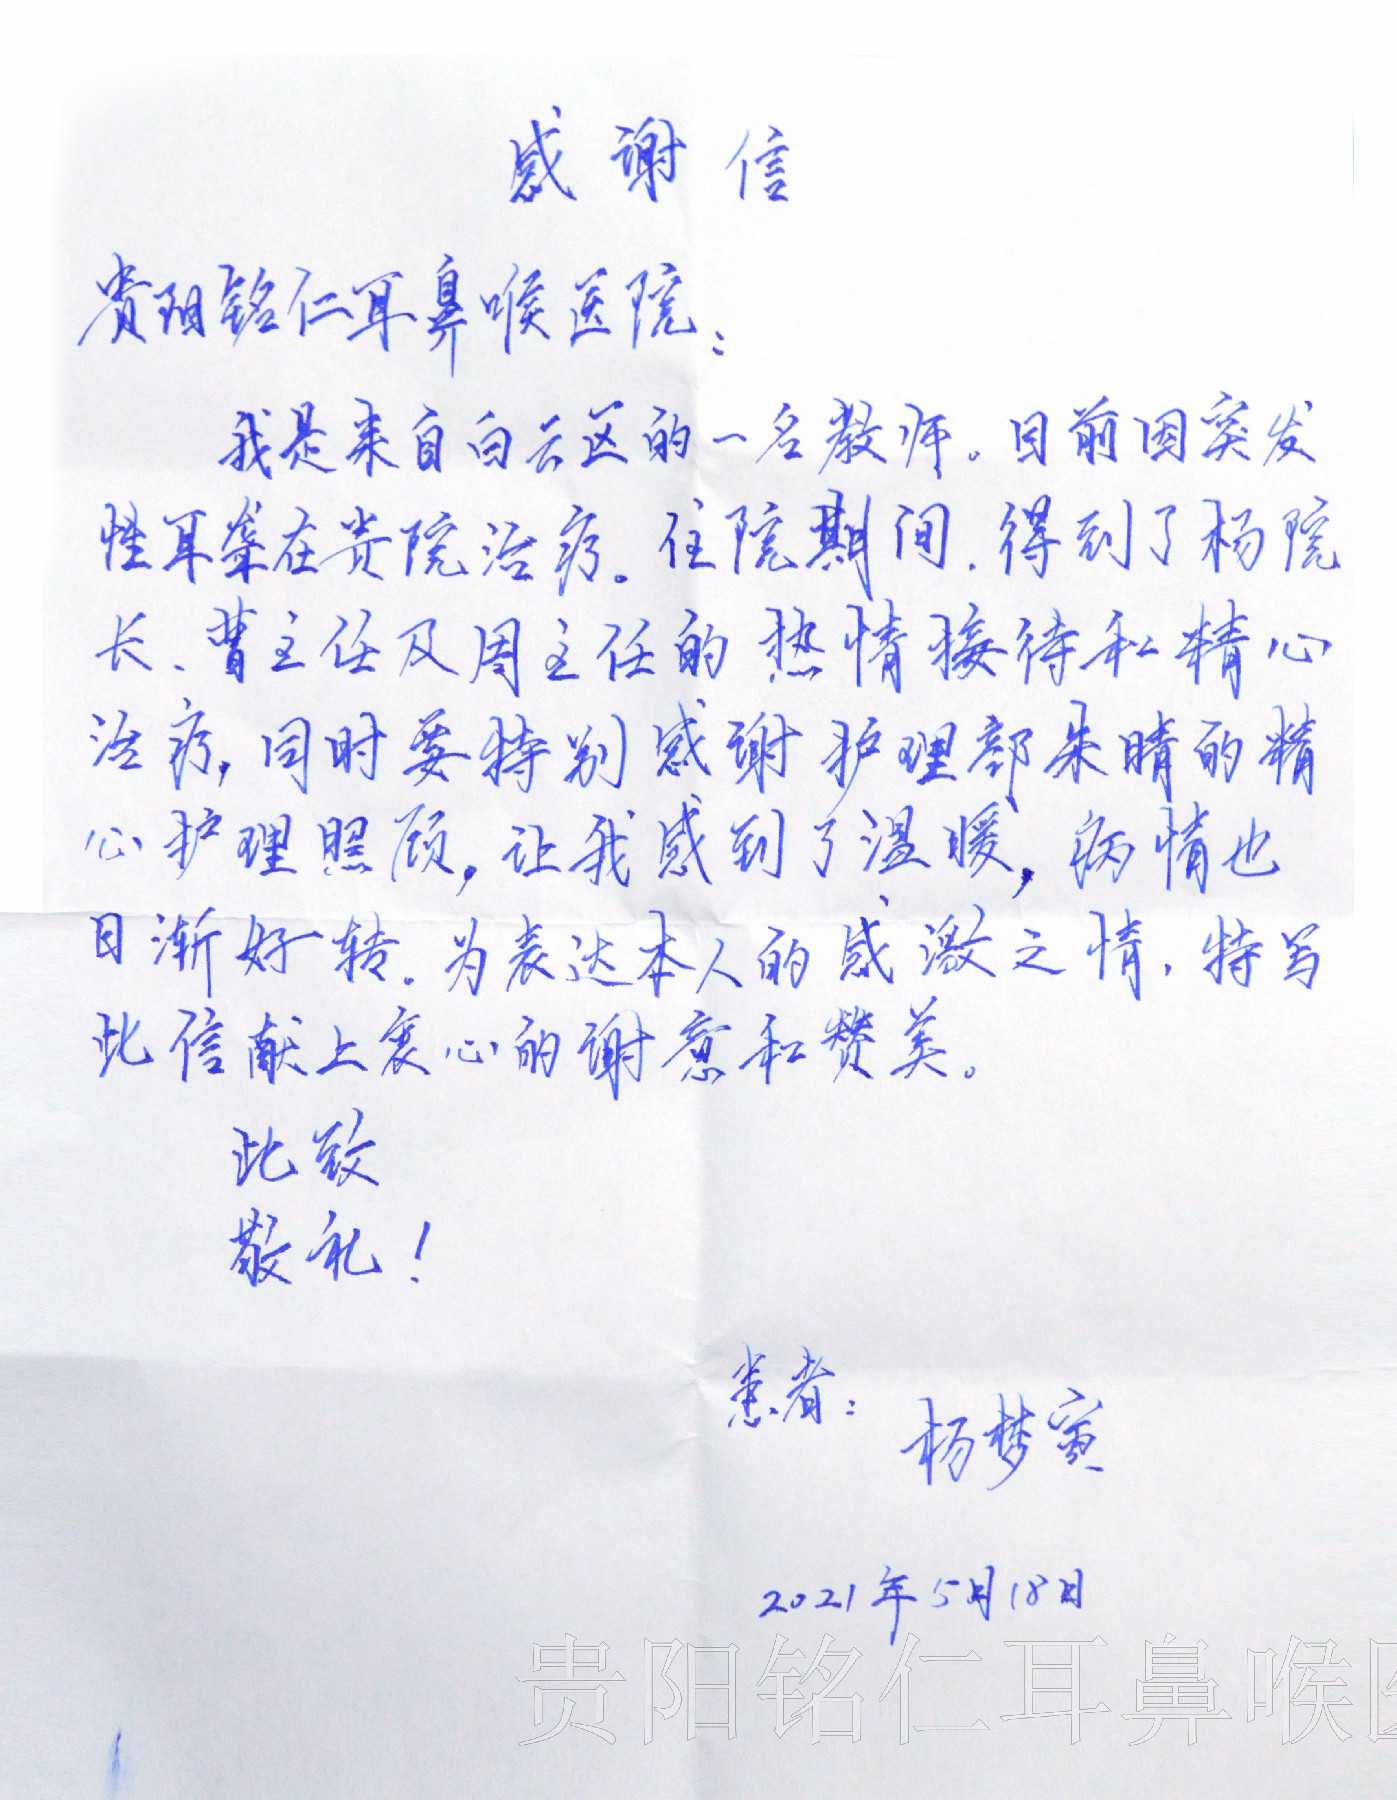 感谢信
贵阳铭仁耳鼻喉医院：
我是来自白云区的一名教师。目前因突发
性耳聋在贵院治疗。住院期间，得到了杨院
长、曹主任及周主任的热情接待和精心
治疗，同时要特别感谢护理部朱晴的精
心护理照顾，让我感到了温暖，病情也
日渐好转。为表达本人的感激之情，特写
此信献上衷心的谢意和赞美。
此致
敬礼！
患者：
杨梦寅
2021年5月18日
贵阳铭仁耳鼻喉医